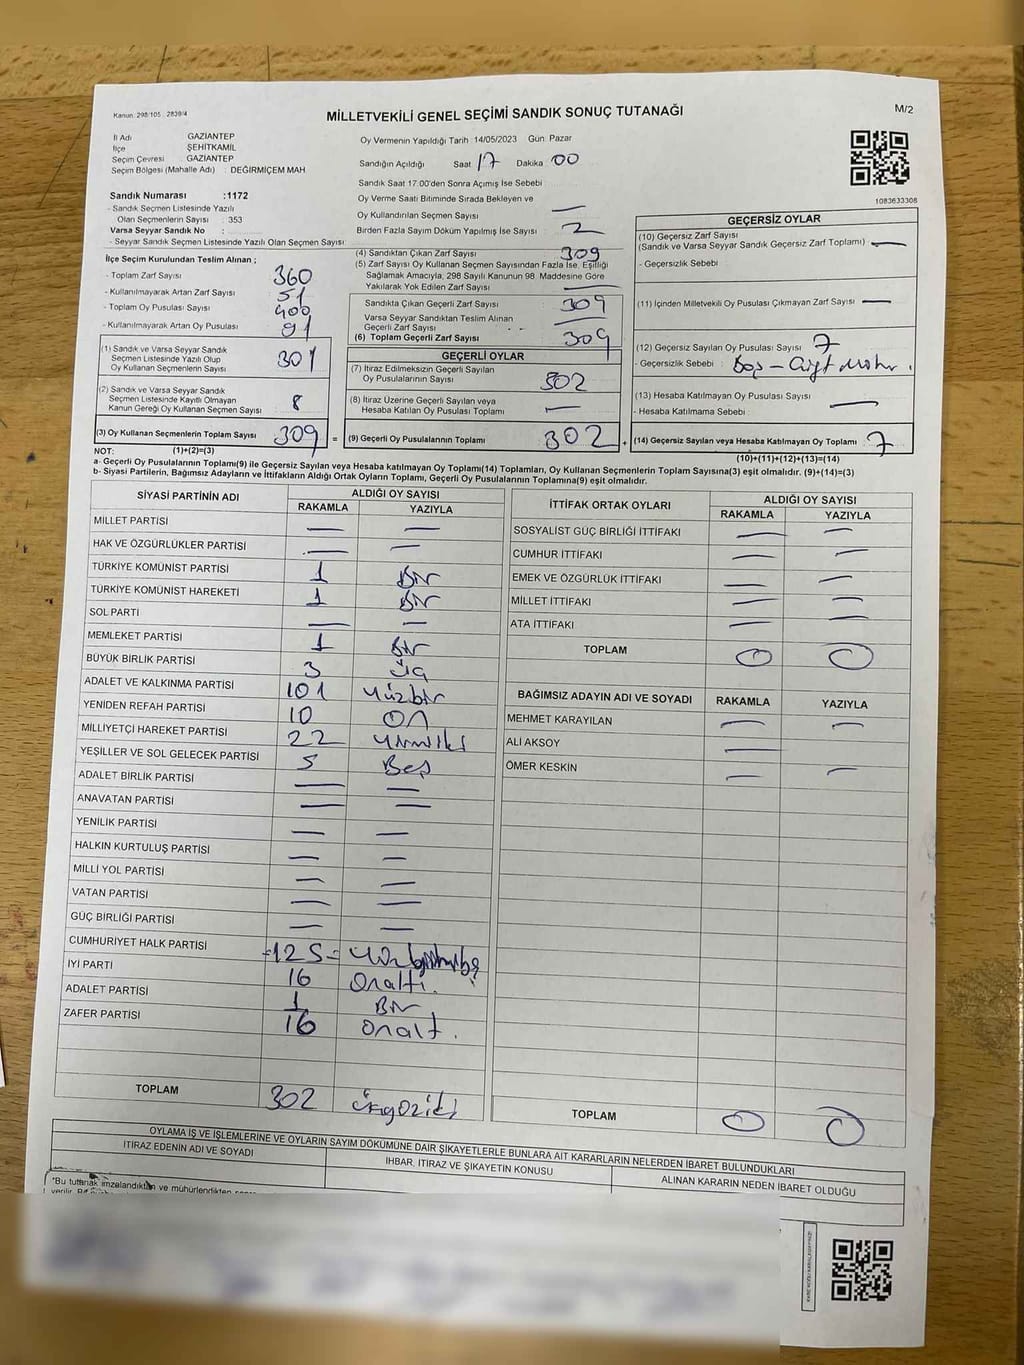 Kanun: 298/105 , 2839/4
MİLLETVEKİLİ GENEL SEÇİMİ SANDIK SONUÇ TUTANAĞI
M/2
İl Adı GAZİANTEP
İlçe ŞEHİTKAMİL
Seçim Çevresi GAZİANTEP
Seçim Bölgesi (Mahalle Adı) : DEĞİRMİÇEM MAH
Sandık Numarası :1172
- Sandık Seçmen Listesinde Yazılı
Olan Seçmenlerin Sayısı : 353
Varsa Seyyar Sandık No :
- Seyyar Sandık Seçmen Listesinde Yazılı Olan Seçmen Sayısı:
Oy Vermenin Yapıldığı Tarih :14/05/2023 Gün: Pazar
Sandığın Açıldığı Saat 17 Dakika 00
Sandık Saat 17:00'den Sonra Açımış İse Sebebi :
Oy Verme Saati Bitiminde Sırada Bekleyen ve
Oy Kullandırılan Seçmen Sayısı —
Birden Fazla Sayım Döküm Yapılmış İse Sayısı 2
1083633308
İlçe Seçim Kurulundan Teslim Alınan ;
- Toplam Zarf Sayısı 360
- Kullanılmayarak Artan Zarf Sayısı 51
- Toplam Oy Pusulası Sayısı 400
- Kullanılmayarak Artan Oy Pusulası 91
(1) Sandık ve Varsa Seyyar Sandık
Seçmen Listesinde Yazılı Olup
Oy Kullanan Seçmenlerin Sayısı 301
(2) Sandık ve Varsa Seyyar Sandık
Seçmen Listesinde Kayıtlı Olmayan
Kanun Gereği Oy Kullanan Seçmen Sayısı 8
(3) Oy Kullanan Seçmenlerin Toplam Sayısı 309 =
(1)+(2)=(3)
(4) Sandıktan Çıkan Zarf Sayısı 309
(5) Zarf Sayısı Oy Kullanan Seçmen Sayısından Fazla İse, Eşitliği
Sağlamak Amacıyla, 298 Sayılı Kanunun 98. Maddesine Göre
Yakılarak Yok Edilen Zarf Sayısı —
Sandıkta Çıkan Geçerli Zarf Sayısı 309
Varsa Seyyar Sandıktan Teslim Alınan
Geçerli Zarf Sayısı —
(6) Toplam Geçerli Zarf Sayısı 309
GEÇERLİ OYLAR
(7) İtiraz Edilmeksizin Geçerli Sayılan
Oy Pusulalarının Sayısı 302
(8) İtiraz Üzerine Geçerli Sayılan veya
Hesaba Katılan Oy Pusulası Toplamı —
(9) Geçerli Oy Pusulalarının Toplamı 302 +
GEÇERSİZ OYLAR
(10) Geçersiz Zarf Sayısı
(Sandık ve Varsa Seyyar Sandık Geçersiz Zarf Toplamı) —
- Geçersizlik Sebebi :
(11) İçinden Milletvekili Oy Pusulası Çıkmayan Zarf Sayısı —
(12) Geçersiz Sayılan Oy Pusulası Sayısı 7
- Geçersizlik Sebebi : Boş –
(13) Hesaba Katılmayan Oy Pusulası Sayısı —
- Hesaba Katılmama Sebebi :
(14) Geçersiz Sayılan veya Hesaba Katılmayan Oy Toplamı 7
(10)+(11)+(12)+(13)=(14)
NOT:
a- Geçerli Oy Pusulalarının Toplamı(9) ile Geçersiz Sayılan veya Hesaba katılmayan Oy Toplamı(14) Toplamları, Oy Kullanan Seçmenlerin Toplam Sayısına(3) eşit olmalıdır. (9)+(14)=(3)
b- Siyasi Partilerin, Bağımsız Adayların ve İttifakların Aldığı Ortak Oyların Toplamı, Geçerli Oy Pusulalarının Toplamına(9) eşit olmalıdır.
SİYASİ PARTİNİN ADI ALDIĞI OY SAYISI
RAKAMLA YAZIYLA
MİLLET PARTİSİ — —
HAK VE ÖZGÜRLÜKLER PARTİSİ — —
TÜRKİYE KOMÜNİST PARTİSİ 1 Bir
TÜRKİYE KOMÜNİST HAREKETİ 1 Bir
SOL PARTİ — —
MEMLEKET PARTİSİ 1 Bir
BÜYÜK BİRLİK PARTİSİ 3 Üç
ADALET VE KALKINMA PARTİSİ 101 Yüzbir
YENİDEN REFAH PARTİSİ 10 On
MİLLİYETÇİ HAREKET PARTİSİ 22 Yirmiiki
YEŞİLLER VE SOL GELECEK PARTİSİ 5 Beş
ADALET BİRLİK PARTİSİ — —
ANAVATAN PARTİSİ — —
YENİLİK PARTİSİ — —
HALKIN KURTULUŞ PARTİSİ — —
MİLLİ YOL PARTİSİ — —
VATAN PARTİSİ — —
GÜÇ BİRLİĞİ PARTİSİ — —
CUMHURİYET HALK PARTİSİ -125-
İYİ PARTİ 16 Onaltı.
ADALET PARTİSİ 1 Bir
ZAFER PARTİSİ 16 Onaltı.
TOPLAM 302 üçyüziki
İTTİFAK ORTAK OYLARI ALDIĞI OY SAYISI
RAKAMLA YAZIYLA
SOSYALİST GÜÇ BİRLİĞİ İTTİFAKI — —
CUMHUR İTTİFAKI — —
EMEK VE ÖZGÜRLÜK İTTİFAKI — —
MİLLET İTTİFAKI — —
ATA İTTİFAKI — —
TOPLAM 0 0
BAĞIMSIZ ADAYIN ADI VE SOYADI RAKAMLA YAZIYLA
MEHMET KARAYILAN — —
ALİ AKSOY —
ÖMER KESKİN — —
TOPLAM 0 0
OYLAMA İŞ VE İŞLEMLERİNE VE OYLARIN SAYIM DÖKÜMÜNE DAİR ŞİKAYETLERLE BUNLARA AİT KARARLARIN NELERDEN İBARET BULUNDUKLARI
İTİRAZ EDENİN ADI VE SOYADI İHBAR, İTİRAZ VE ŞİKAYETİN KONUSU ALINAN KARARIN NEDEN İBARET OLDUĞU
"Bu tutanak imzalandıktan ve mühürlendikten sonra